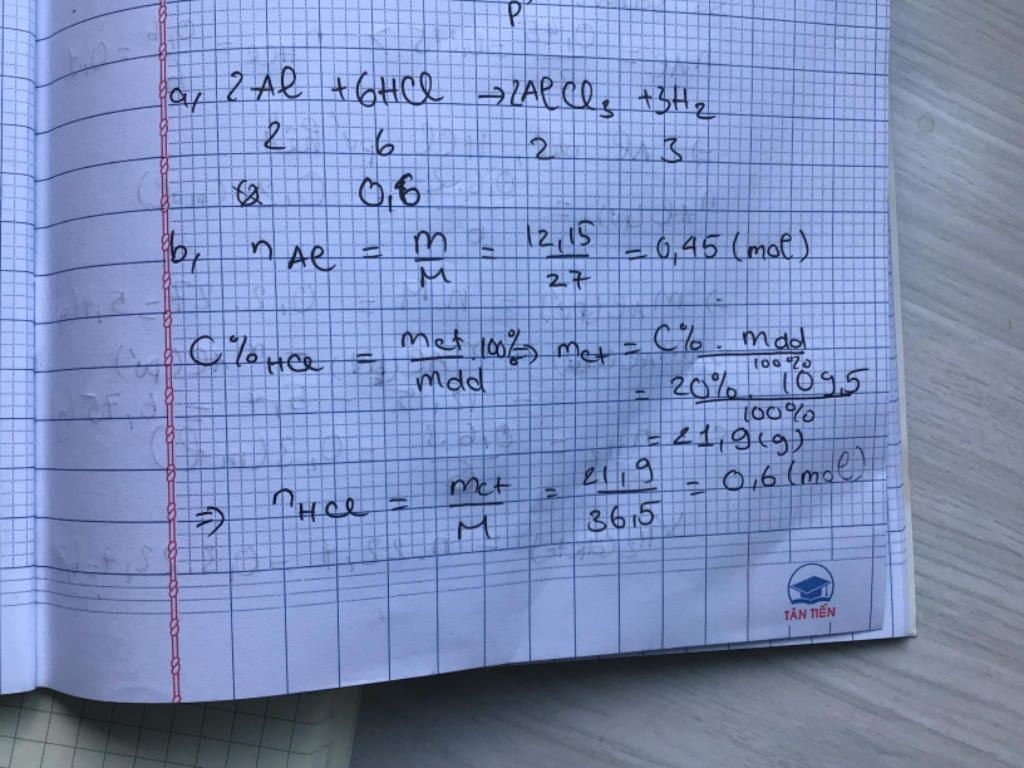 P
a, 2Al + 6HCl → 2AlCl₃ + 3H₂
2 6 2 3
0,6
b, n Al = m/M = 12,15/27 = 0,45 (mol)
C% HCl = mct/mdd . 100% ⇒ mct = C% . mdd/100%
= 20% . 109,5/100%
= 21,9 (g)
⇒ n HCl = mct/M = 21,9/36,5 = 0,6 (mol)
TÂN TIẾN